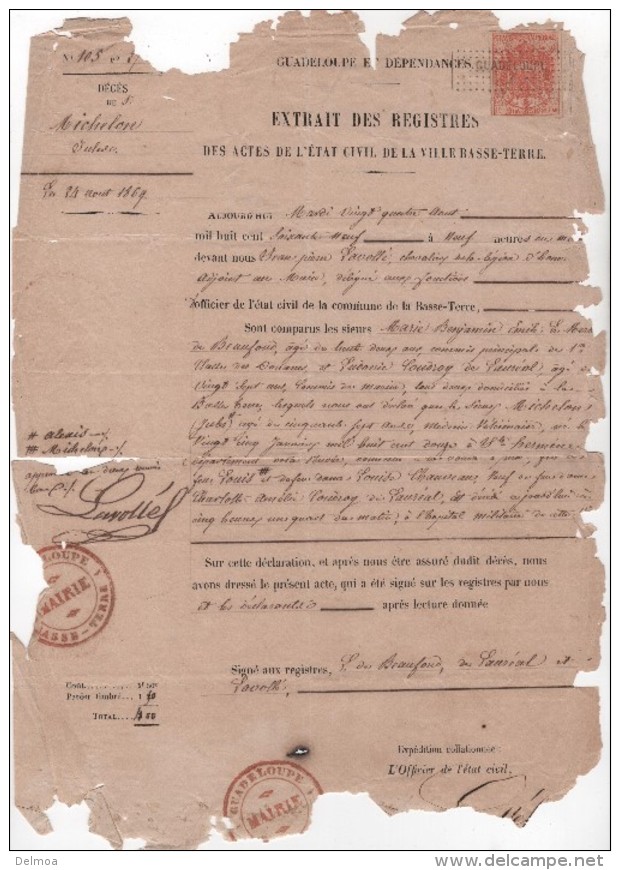 N° 105
DÉCÈS
DU S.
Michelon
Jules
Du 24 aout 1869
GUADELOUPE ET DÉPENDANCES
GUADELOUPE
EXTRAIT DES REGISTRES
DES ACTES DE L'ÉTAT CIVIL DE LA VILLE BASSE-TERRE.
AUJOURD'HUI Mardi Vingt quatre Aout
mil huit cent Soixante Neuf à Neuf heures du
devant nous Jean pierre Lavollé, chevalier de la Légion d'hon
Adjoint au Maire, délégué aux fonctions
d'officier de l'état civil de la commune de la Basse-Terre,
Sont comparus les sieurs Marie Benjamin Emile
de Beaufond, âgé de trente deux ans commis principale de 1re
Classe des Douanes, et Coudroy de Lauréal, âgé de
Vingt Sept ans, Commis de marine, tous deux domiciliés à la
Basse terre, lesquels nous ont déclaré que le Sieur Michelon
(Jules) âgé de cinquante Sept Ans, Médecin Vétérinaire, né le
Vingt Cinq Janvier mil huit cent douze à
département
feu Louis # et de feue dame Louise Chauveau, Veuf de feue dame
Charlotte Amélie Coudroy de Lauréal, est décédé aujourd'hui à
cinq heures un quart du matin, à l'hopital militaire de cette
# alexis
# Michelon
Lavollé
GUADELOUPE
MAIRIE
BASSE-TERRE
Sur cette déclaration, et après nous être assuré dudit décès, nous
avons dressé le présent acte, qui a été signé sur les registres par nous
et les déclarants après lecture donnée
Signé aux registres, E. de Beaufond, de Lauréal et
Lavollé,
Coût
Papier timbré
TOTAL
Expédition collationnée :
L'Officier de l'état civil,
GUADELOUPE
MAIRIE
Delmoa
www.delcampe.net